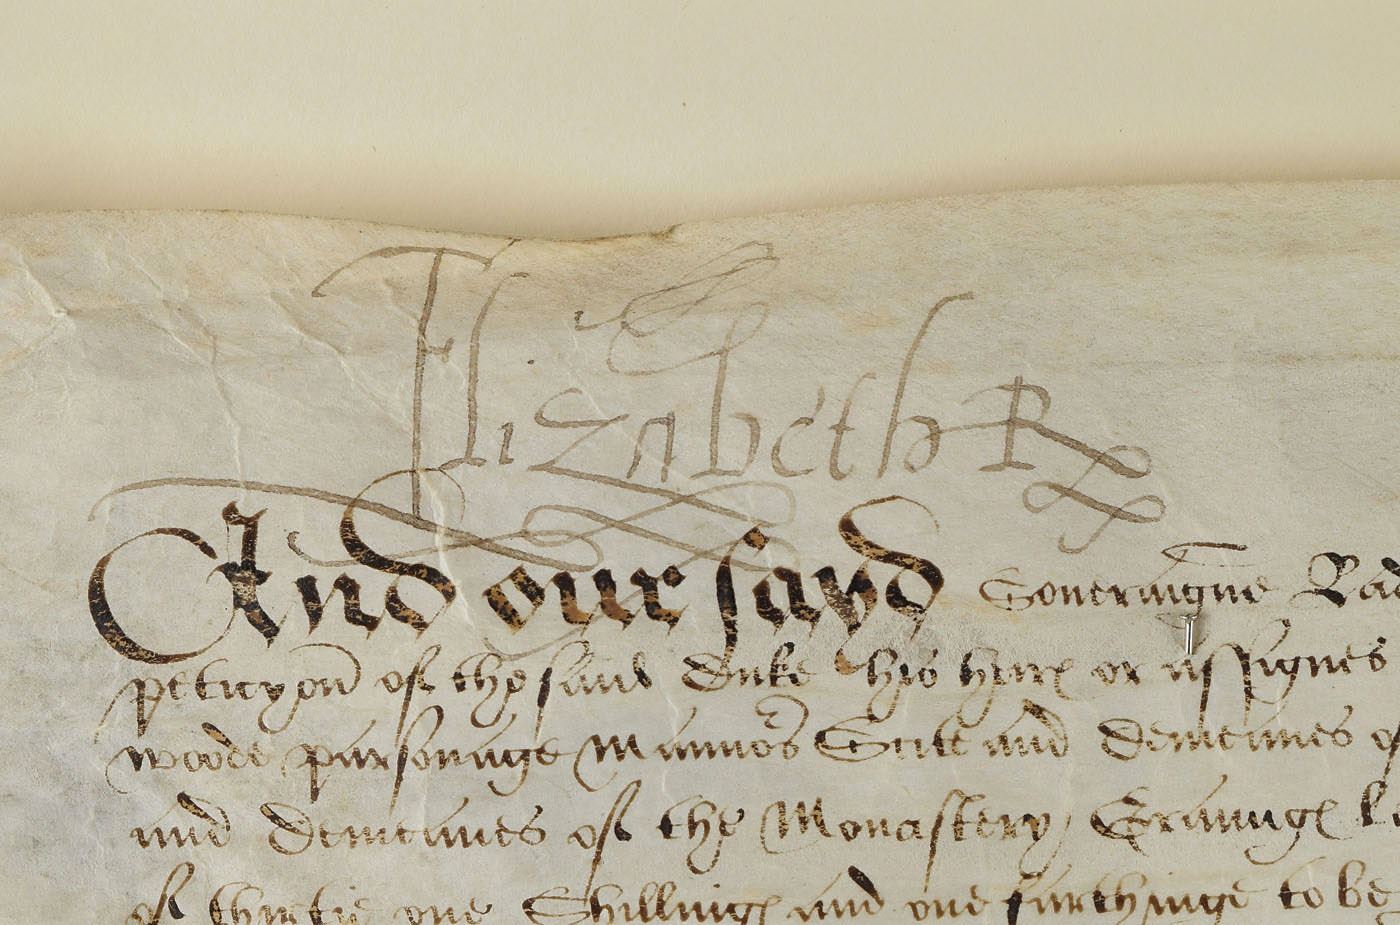 Elizabeth R
And our sayd Soveraigne Lad
peticyon of the said Duke his heires or assignes
woode parsonage Mannor Scite and demeanes of
and demeanes of the Monastery Graunge
of thirtie one Shillings and one farthinge to be